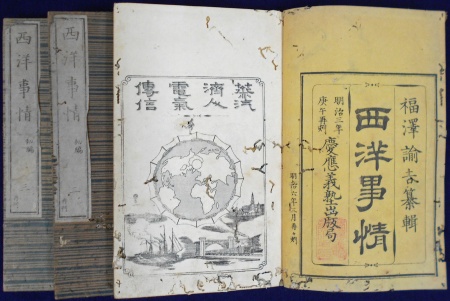 福澤諭吉纂輯
西洋事情
明治三年
庚午再刻
慶應義塾出版局
蒸汽
濟人
電氣
傳信
西洋事情
初編
西洋事情
初編